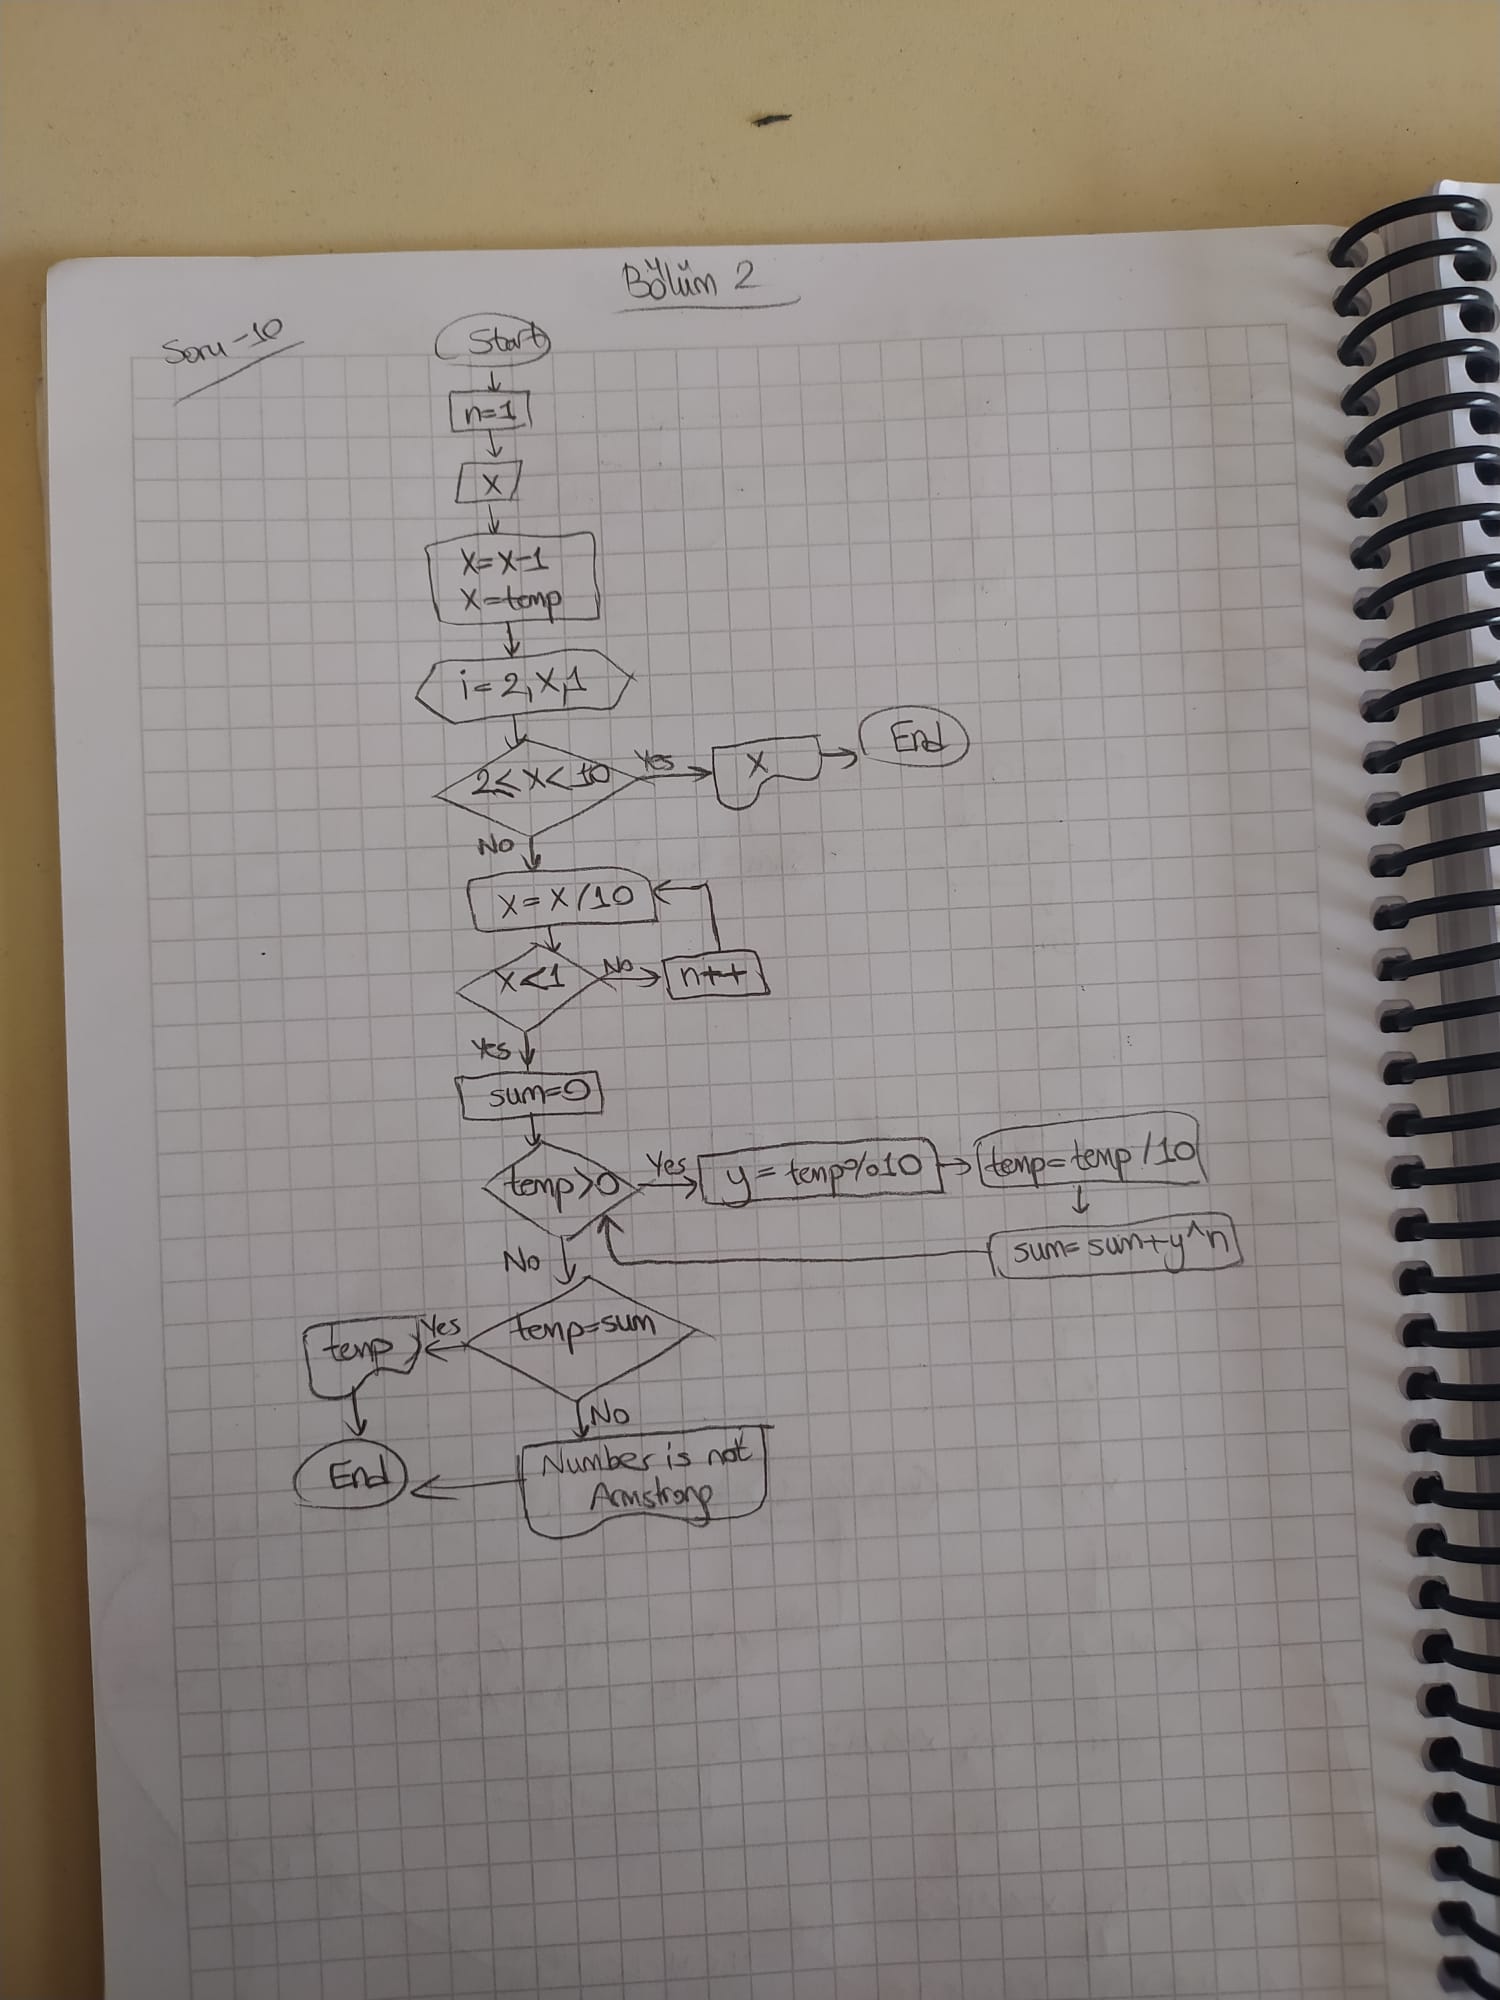 Bölüm 2
Soru-10
Start
n=1
x
x=x-1
x=temp
i=2,x,1
2≤x<10
Yes
x
End
No
x=x/10
x<1
No
n++
Yes
sum=0
temp>0
Yes
y=temp%10
temp=temp/10
sum=sum+y^n
No
temp=sum
Yes
temp
No
Number is not
Armstrong
End